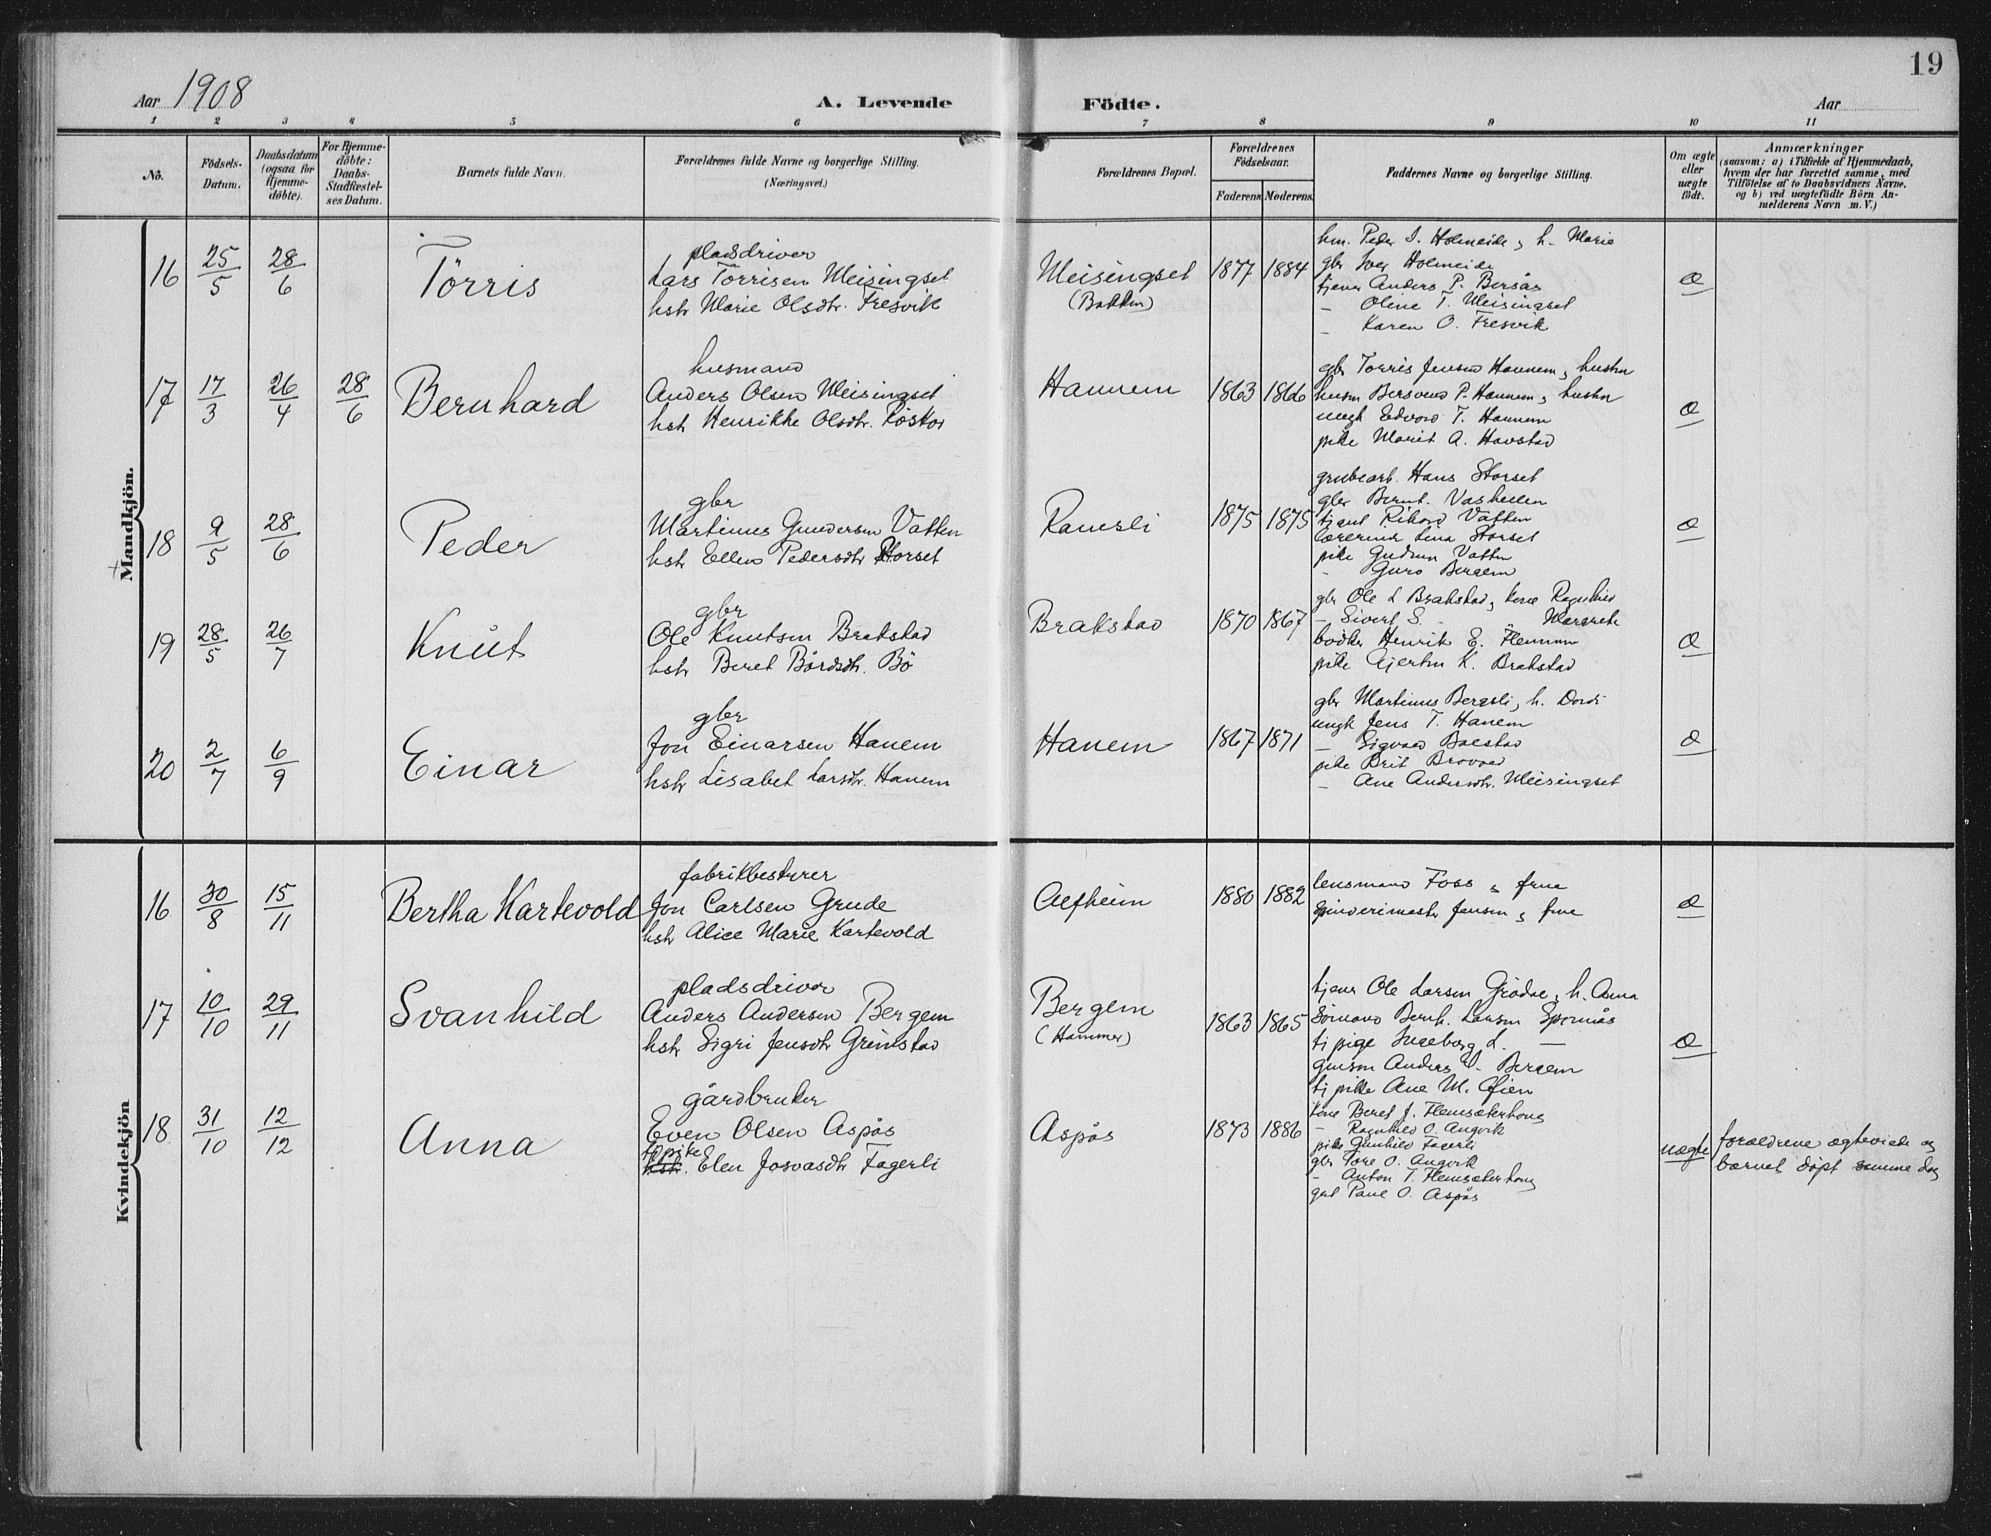 19
Aar 1908
A. Levende Födte.
Aar
1 2 3 4 5 6 7 8 9 10 11
No.
Födsels-Datum.
Daabsdatum (ogsaa for Hjemme-döbte).
For Hjemme-döbte: Daabs-Stadfæstel-ses Datum.
Barnets fulde Navn.
Forældrenes fulde Navne og borgerlige Stilling.
(Næringsvei.)
Forældrenes Bopæl.
Forældrenes Födselsaar.
Faderens Moderens
Faddernes Navne og borgerlige Stilling.
Om ægte eller uægte født.
Anmærkninger
(saasom: a) i Tilfælde af Hjemmedaab,
hvem der har forrettet samme, med
Tilføielse af to Daabsvidners Navne,
og b) ved uægtefödte Börn An-
melderens Navn m. V.)
Mandkjön.
16 25/5 28/6 Törris
pladsdriver
Lars Törrisen Meisingset
hstr Marie Olsdtr. Fresvik
Meisingset
(Bakken)
1877 1884
hm. Peder I. Holmeide, h. Marie
gbr Iver Holmeide
tjener Anders P. Bersås
- Oline T. Meisingset
- Karen O. Fresvik
æ
17 17/3 26/4 28/6 Bernhard
husmand
Anders Olsen Meisingset
hstr Henrikke Olsdtr. Röskar
Hannem
1863 1866
gbr Torris Jensen Hannem, hustru
husm Bersvend P. Hannem, hustru
ungk Edvard T. Hannem
pike Marit A. Havstad
æ
18 9/5 28/6 Peder
gbr
Martinus Gundersen Vatten
hstr Ellen Pedersdtr Storset
Ramsli
1875 1875
grubearb. Hans Storset
gbr Bernt. Vashellen
tjent Rikard Vatten
lærerinde Lina Storset
pike Gudrun Vatten
- Guro Bergem
æ
19 28/5 26/7 Knut
gbr
Ole Knutsen Brakstad
hstr Beret Bårdsdtr. Bö
Brakstad
1870 1867
gbr Ole L Brakstad, kone Ragnhild
- Sivert S. - Margrete
bödker Henrik E. Flemmen
pike Gjertru K. Brakstad
æ
20 2/7 6/9 Einar
gbr
Jon Einarsen Hanem
hstr Lisabet Larsdtr. Hanem
Hanem
1867 1871
gbr Martinus Bergsli, h. Dordi
ungk Jens T. Hanem
- Sigvard Bolstad
pike Brit Brovold
- Ane Andersdtr. Meisingset
æ
Kvindekjön
16 30/8 15/11 Bertha Kartevold
fabrikbestyrer
Jon Carlsen Grude
hstr Alice Marie Kartevold
Alfheim
1880 1882
lensmand Foss & frue
Spinderimester Jensen & frue
æ
17 10/10 29/11 Svanhild
pladsdriver
Anders Andersen Bergem
hstr Sigri Jensdtr Grimstad
Bergem
(Hammer)
1863 1865
tjener Ole Larsen Grödal, h. Anna
Sömand Bernh. Larsen Spernås
tj pige Ingeborg L. —
Anders - Bergem
tj pike Ane M. Öien
æ
18 31/10 12/12 Anna
gårdbruker
Even Olsen Aspås
tj pike
hstr. Elen Josvasdtr Fagerli
Aspås
1873 1886
kone Beret J. Flemsæterhaug
- Ragnhild O. Angvik
pike Gunhild Fagerli
gbr Tore O. Angvik
- Anton T. Flemsæterhaug
gut Paul O. Aspås
uægte
forældrene ægteviede og
barnet döpt samme dag